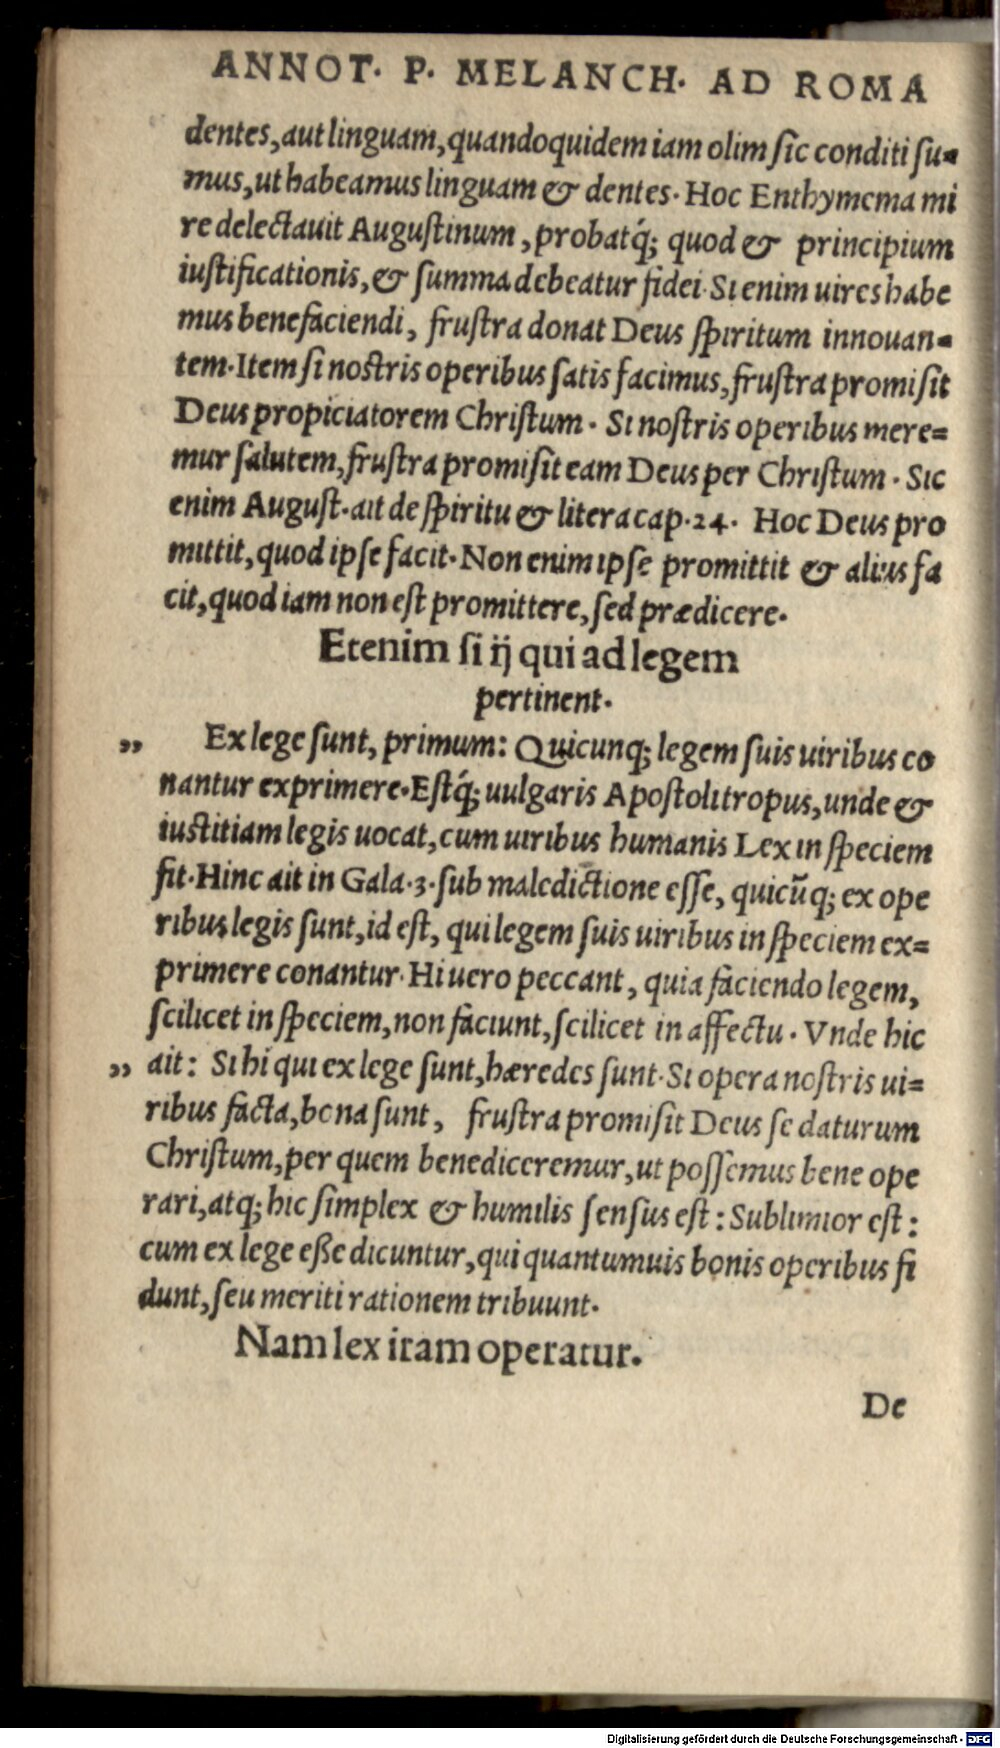 ANNOT. P. MELANCH. AD ROMA
dentes, aut linguam, quandoquidem iam olim sic conditi su=
mus, ut habeamus linguam & dentes. Hoc Enthymema mi
re delectauit Augustinum, probatq́; quod & principium
iustificationis, & summa debeatur fidei. Si enim uires habe
mus benefaciendi, frustra donat Deus spiritum innouan=
tem. Item si nostris operibus satis facimus, frustra promisit
Deus propiciatorem Christum. Si nostris operibus mere=
mur salutem, frustra promisit eam Deus per Christum. Sic
enim August. ait de spiritu & litera cap. 24. Hoc Deus pro
mittit, quod ipse facit. Non enim ipse promittit & alius fa
cit, quod iam non est promittere, sed prædicere.
Etenim si ij qui ad legem
pertinent.
„ Ex lege sunt, primum: Quicunq; legem suis uiribus co
nantur exprimere. Estq́; uulgaris Apostoli tropus, unde &
iustitiam legis uocat, cum uiribus humanis Lex in speciem
fit. Hinc ait in Gala. 3. sub maledictione esse, quicūq; ex ope
ribus legis sunt, id est, qui legem suis uiribus in speciem ex=
primere conantur. Hi uero peccant, quia faciendo legem,
scilicet in speciem, non faciunt, scilicet in affectu. Vnde hic
„ ait: Si hi qui ex lege sunt, hæredes sunt. Si opera nostris ui=
ribus facta, bona sunt, frustra promisit Deus se daturum
Christum, per quem benediceremur, ut possemus bene ope
rari, atq; hic simplex & humilis sensus est: Sublimior est:
cum ex lege eße dicuntur, qui quantumuis bonis operibus fi
dunt, seu meriti rationem tribuunt.
Nam lex iram operatur.
De
Digitalisierung gefördert durch die Deutsche Forschungsgemeinschaft - DFG